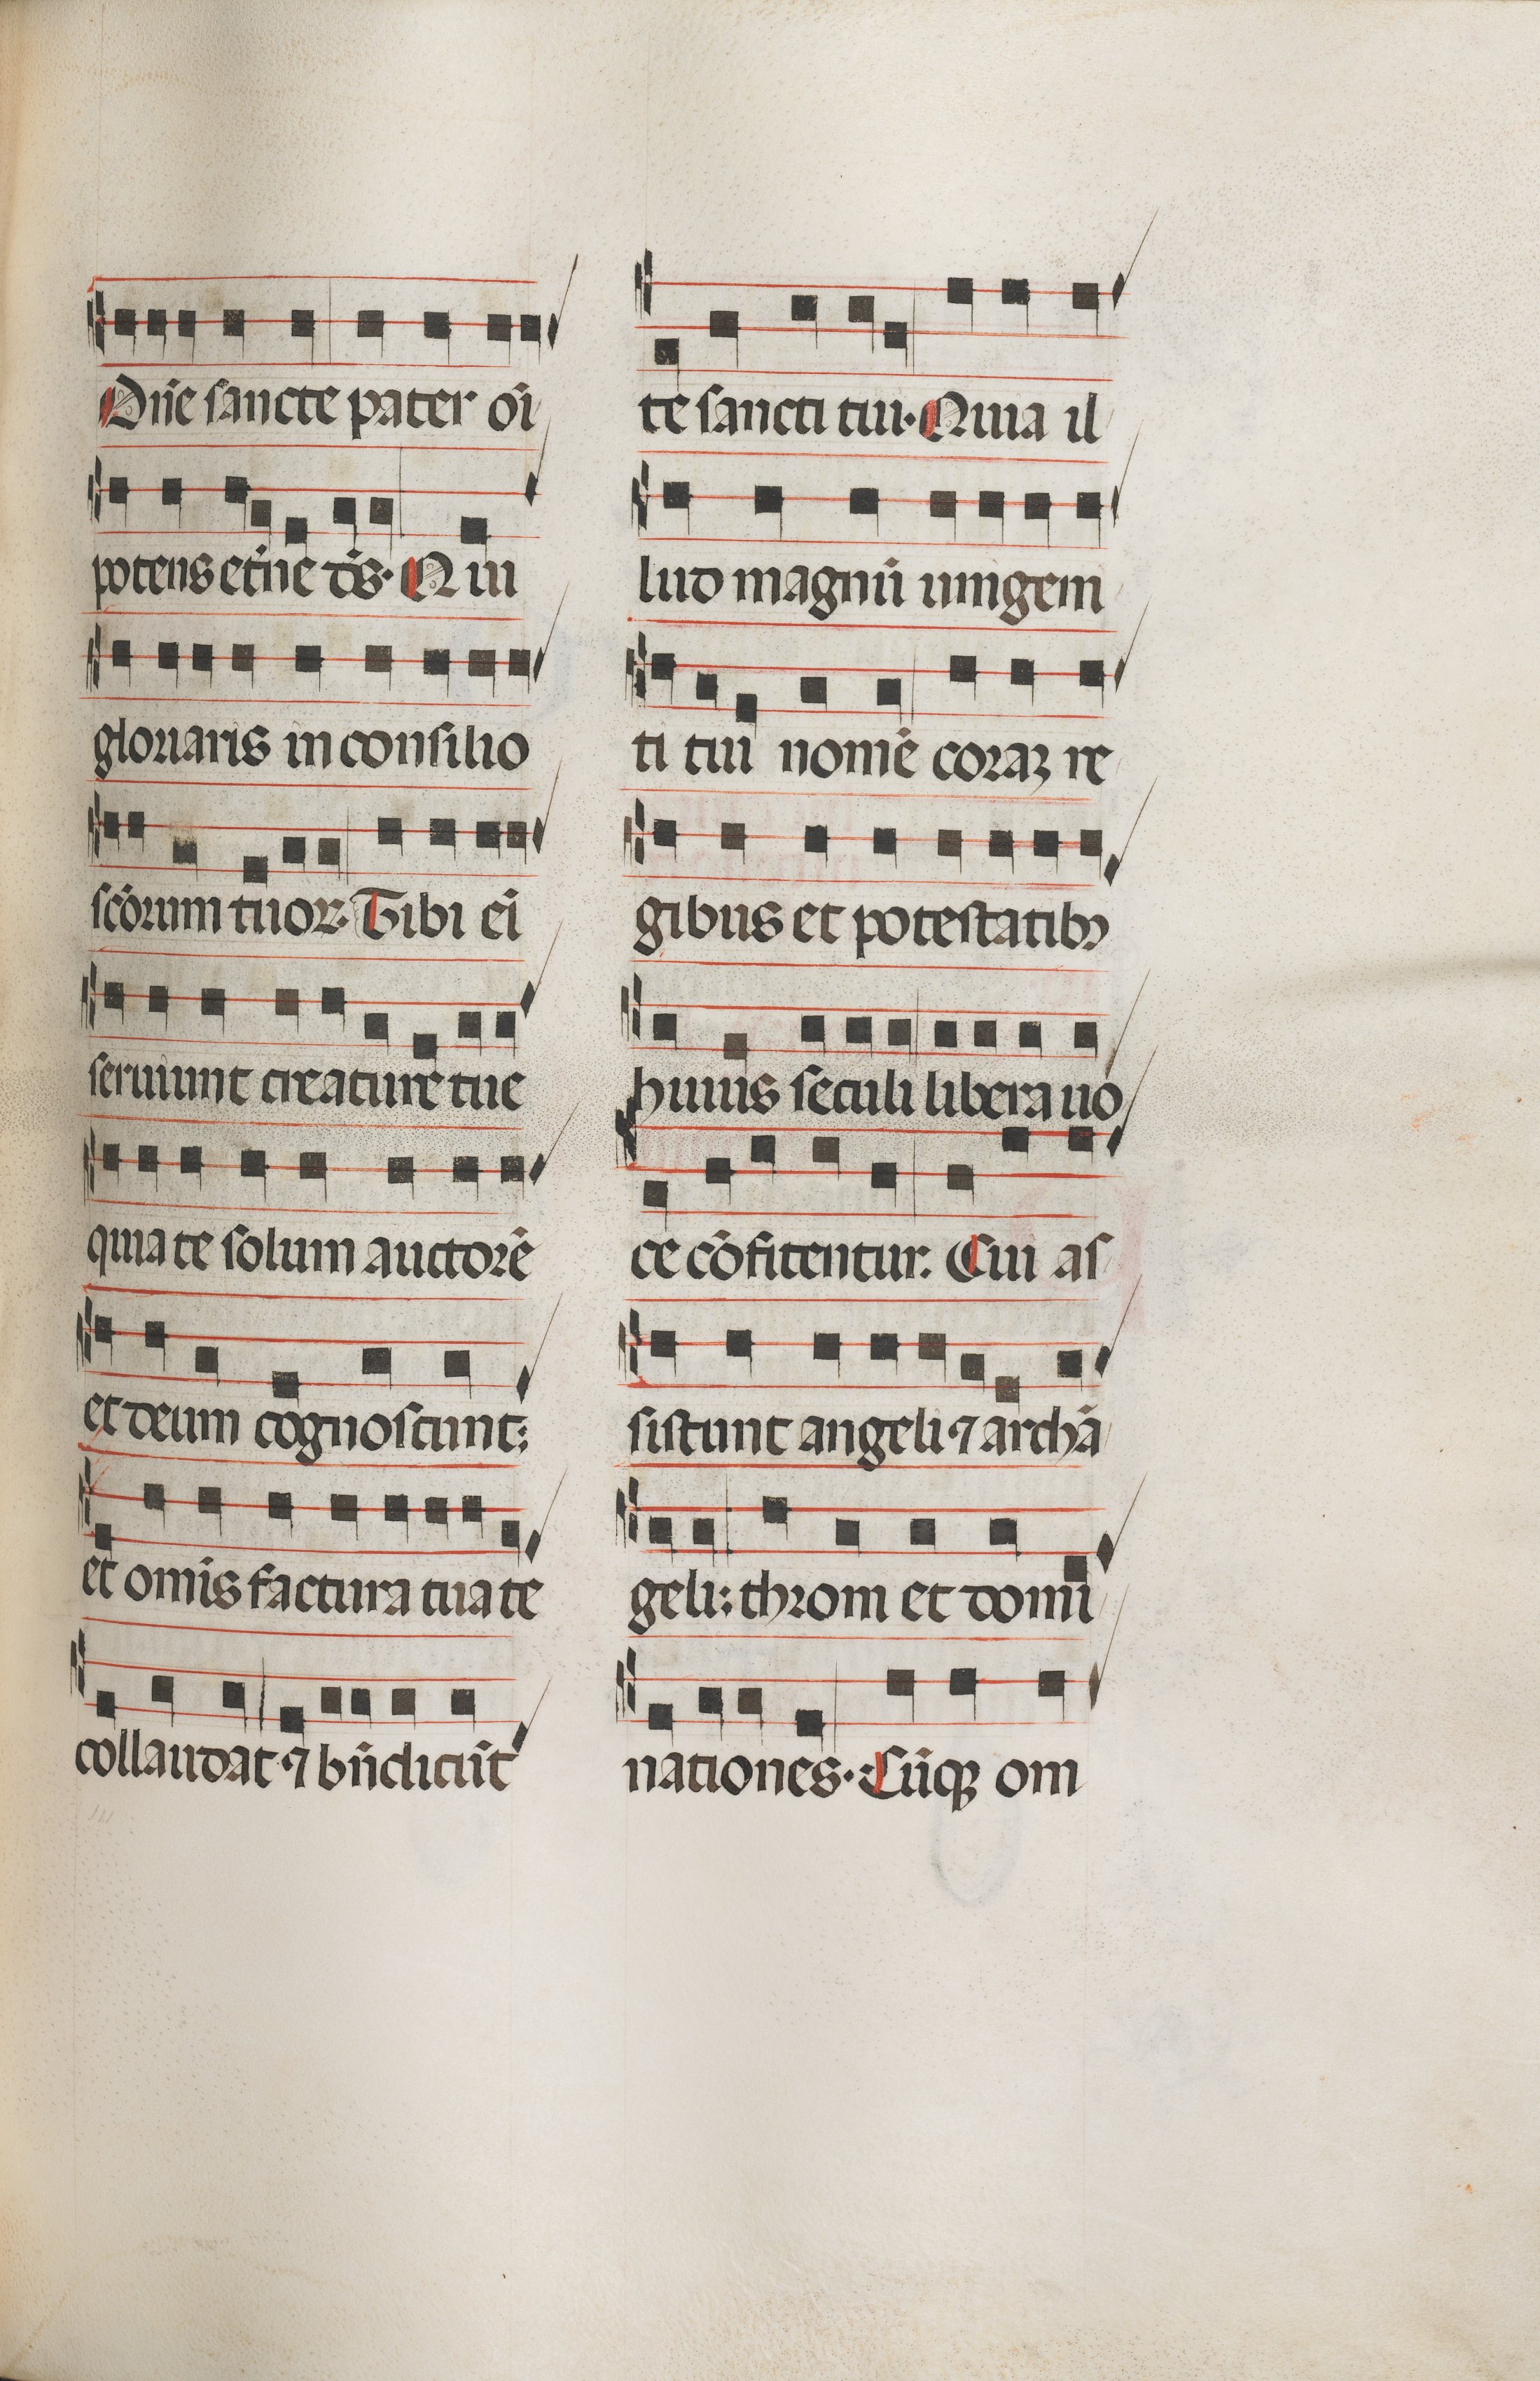 Dn̄e sancte pater oı̄
potens et̄ne d̄s· Qui
gloriaris in consilio
sc̄orum tuoꝝ· Tibi eī
seruiunt creature tue
quia te solum auctorē
et deum cognoscunt;
et omīs factura tua te
collaudat ⁊ bn̄dicūt
te sancti tui· Quia il
lud magnū unigeni
ti tui nomē coraꝫ re
gibus et potestatibꝫ
huius seculi libera uo
ce cōfitentur. Cui as
sistunt angeli ⁊ archā
geli: throni et domi
nationes· Cūiqꝫ om